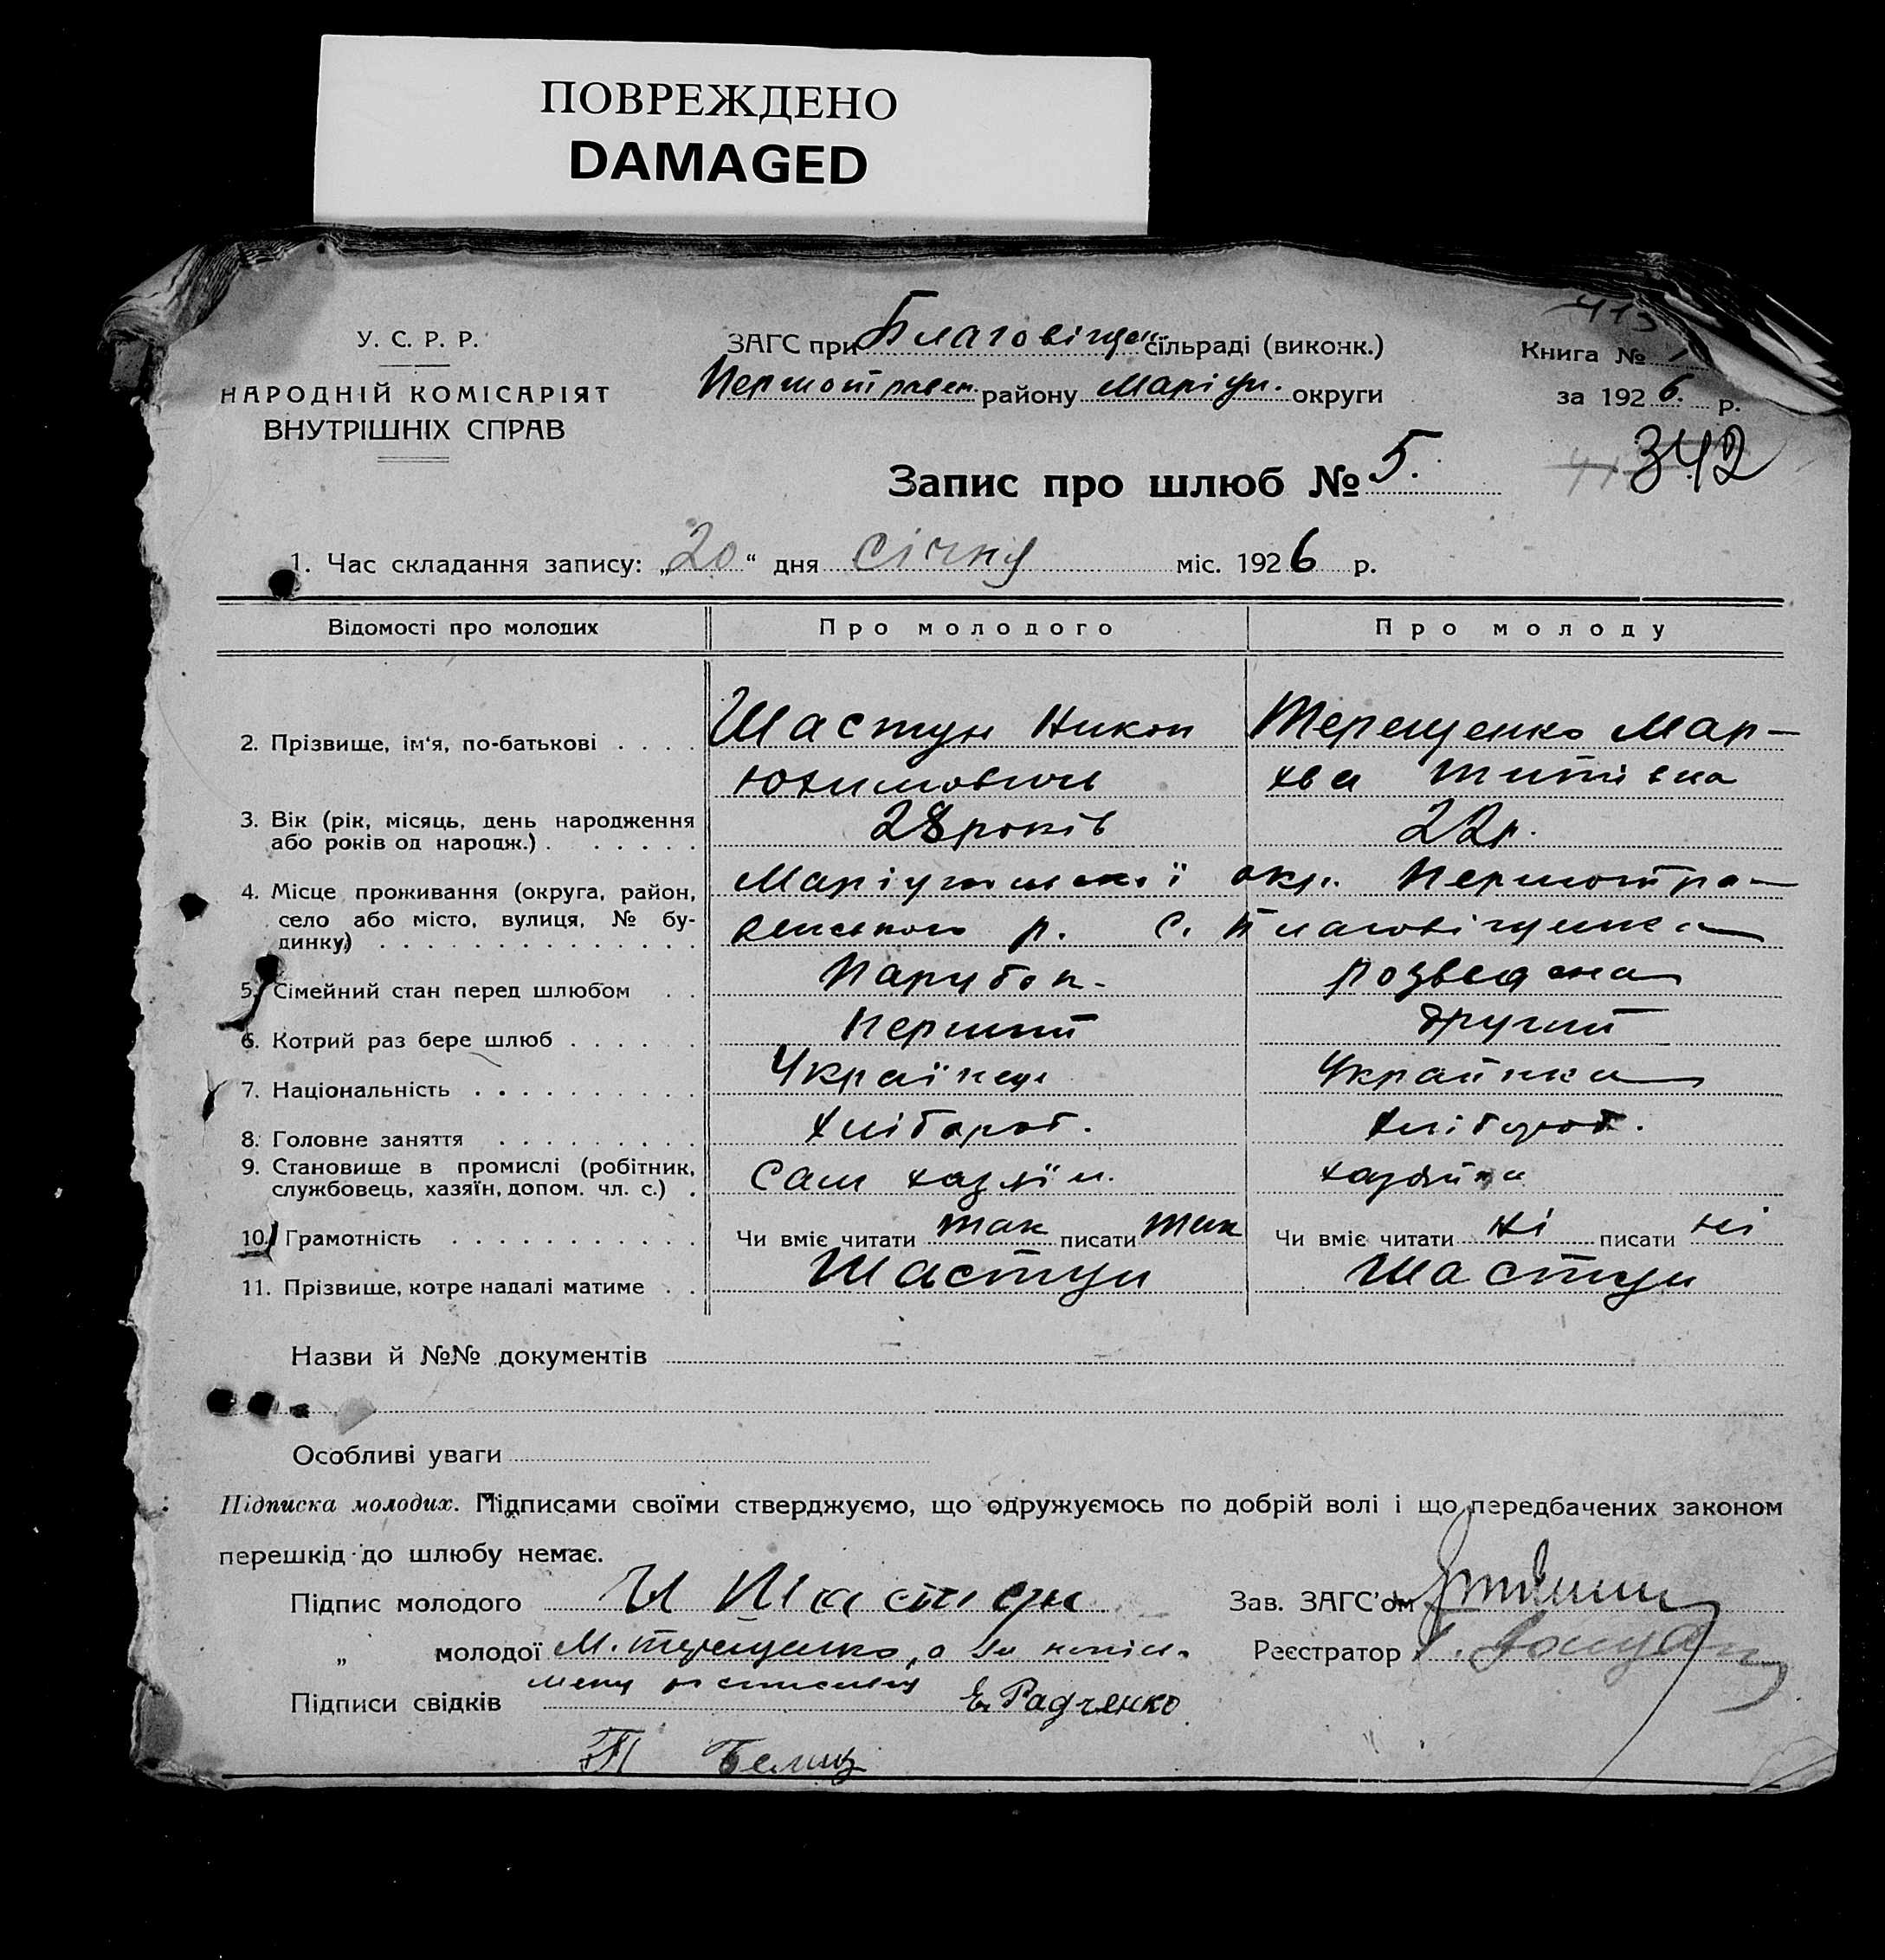 ПОВРЕЖДЕНО
DAMAGED
У. С. Р. Р.
НАРОДНІЙ КОМІСАРІЯТ
ВНУТРІШНІХ СПРАВ
ЗАГС при Благовіщен. сільраді (виконк.)
Першотравен. району Маріуп. округи
Книга № 1
за 1926 р.
342
Запис про шлюб № 5.
1. Час складання запису: „20“ дня січня міс. 1926 р.
Відомості про молодих Про молодого Про молоду
2. Прізвище, ім'я, по-батькові Шастун Никон Терещенко Мар-
Юхимович хва Титівна
3. Вік (рік, місяць, день народження
або років од народж.) 28 років 22 р.
4. Місце проживання (округа, район, Маріупольської окр. Першотра-
село або місто, вулиця, № бу-
динку) венського р. с. Благовіщенка
5. Сімейний стан перед шлюбом Парубок. розведена
6. Котрий раз бере шлюб перший другий
7. Національність Українець Українка
8. Головне заняття хлібороб. хлібороб.
9. Становище в промислі (робітник,
службовець, хазяїн, допом. чл. с.) Сам хазяїн. хазяйка
10. Грамотність Чи вміє читати так писати так Чи вміє читати ні писати ні
11. Прізвище, котре надалі матиме Шастун Шастун
Назви й №№ документів
Особливі уваги
Підписка молодих. Підписами своїми стверджуємо, що одружуємось по добрій волі і що передбачених законом
перешкід до шлюбу немає.
Підпис молодого Н Шастун Зав. ЗАГС'ом
„ молодої М. Терещенко, а Реєстратор
Підписи свідків Е. Радченко